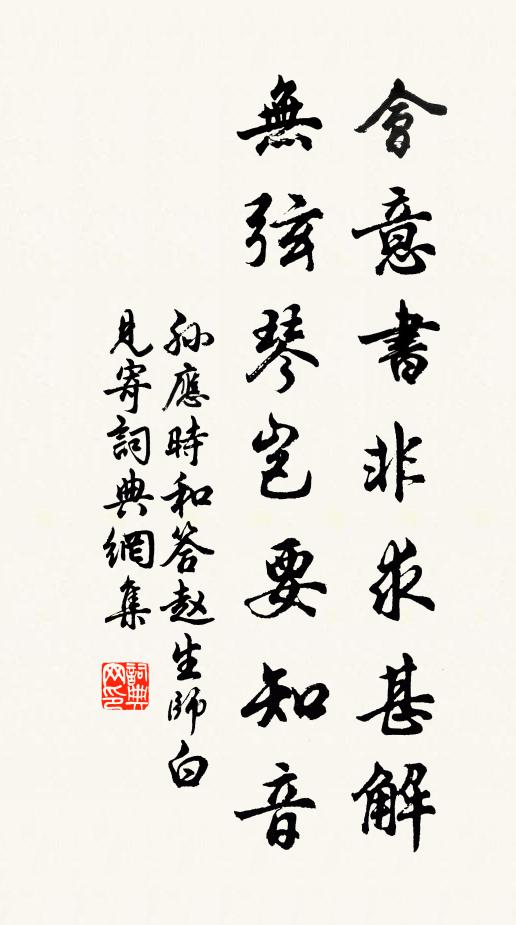 會意書非求甚解
無弦琴豈要知音
孫應時和答赵生師白
見寄詞典網集
詞典網印